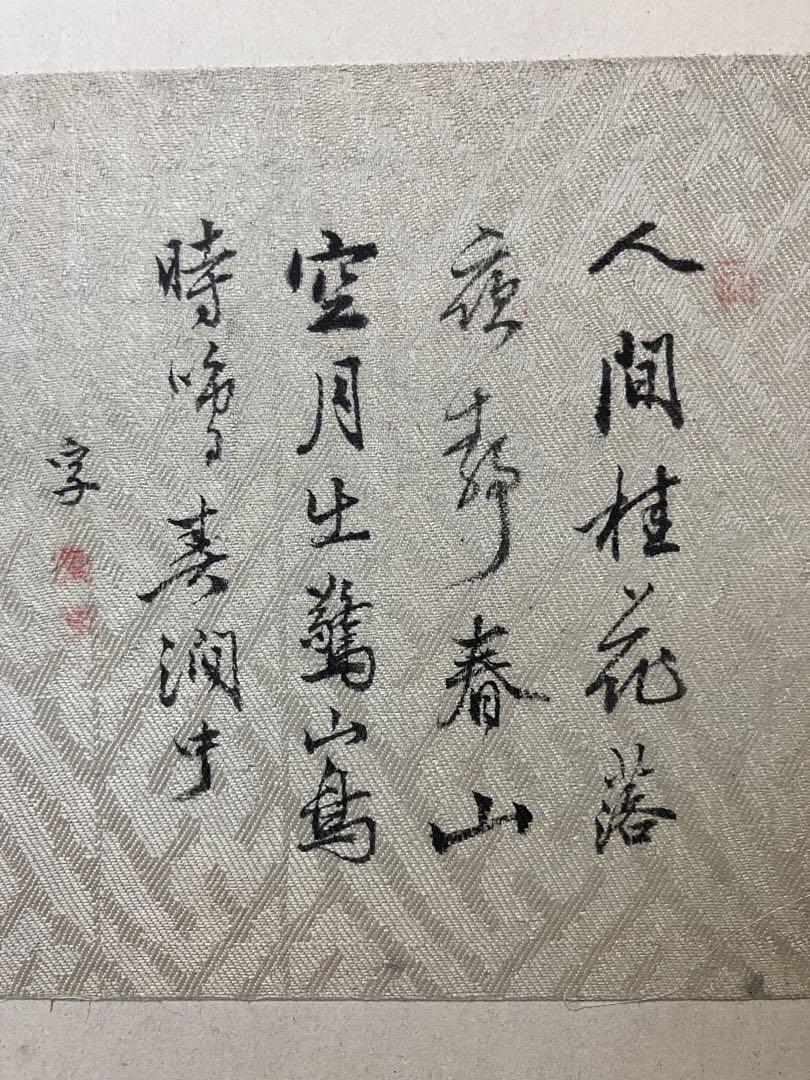 人間桂花落
夜靜春山
空月出驚山鳥
時鳴春澗中